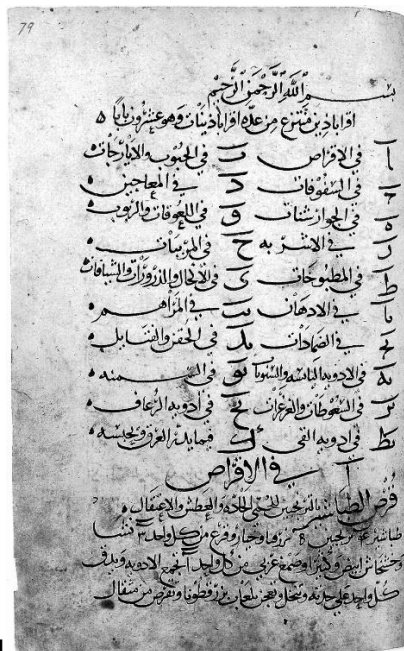 79
بسم الله الرحمن الرحيم
اقراباذين منتزع من عدة اقراباذينات وهو عشرون بابا ه
ا في الاقراص ب في الحبوب والايارجات
ج في السفوفات د في المعاجين ه
ه في الجوارشنات و في اللعوقات والربوب ه
ز في الاشربه ح في المربيات ه
ط في المطبوخات ى في الاكحال والذرورات والشيافات
يا في الادهان يب في المراهم ه
يج في الضمادات يد في الحقن والفتايل ه
يه في الادويه يو في السمنه ه
يز في السعوطات والغرغرات يح في ادويه الرعاف ه
يط في ادويه القى ك فيما يدر العرق ويحبسه ه
ا في الاقراص
قرص الطباشير بالترنجبين للحمى الحادة والعطش والاعتقال ه
طباشير ترنجبين بزر قثا وخيار وقرع من كل واحد نشا
وخشخاش ابيض وكثيرا وصمغ عربي من كل واحد الجمع الادويه ويدق
كل واحد على حدته وينخل ويعجن بلعاب بزر قطونا ويقرص من مثقال